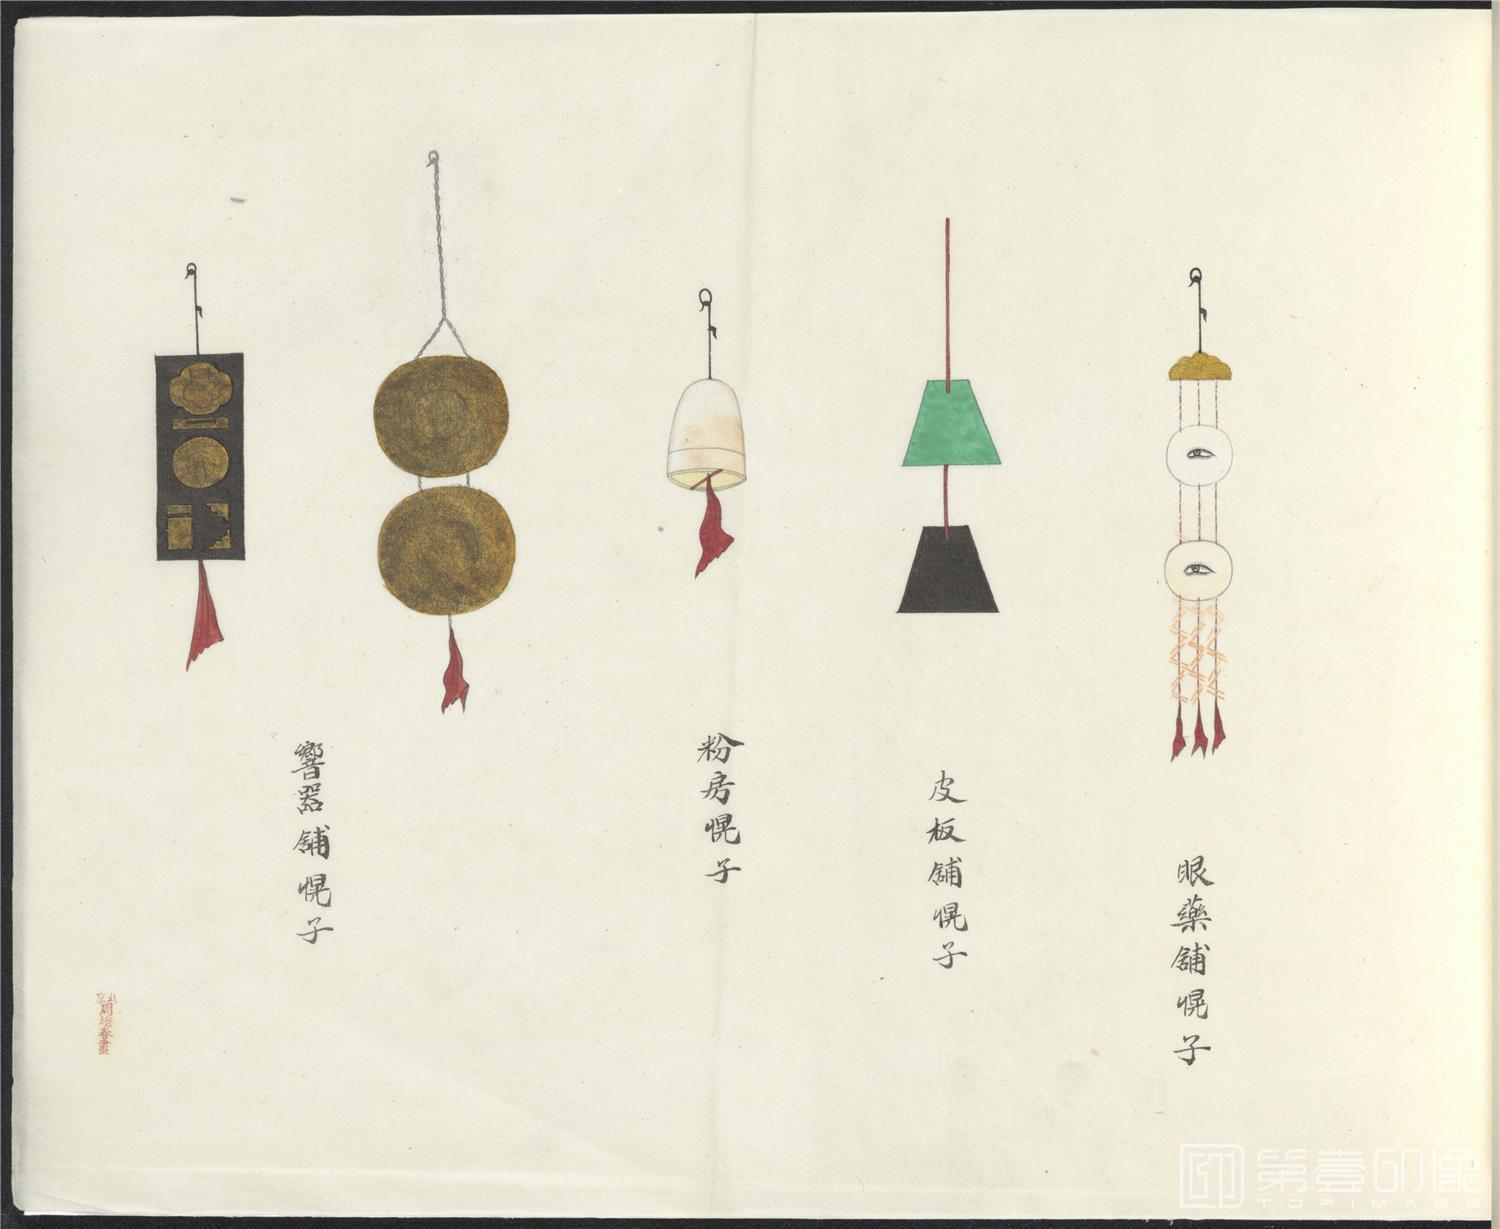 眼藥舖幌子
皮板舖幌子
粉房幌子
響器舖幌子
北京周培春畫
第壹印像
TOPIMAGE